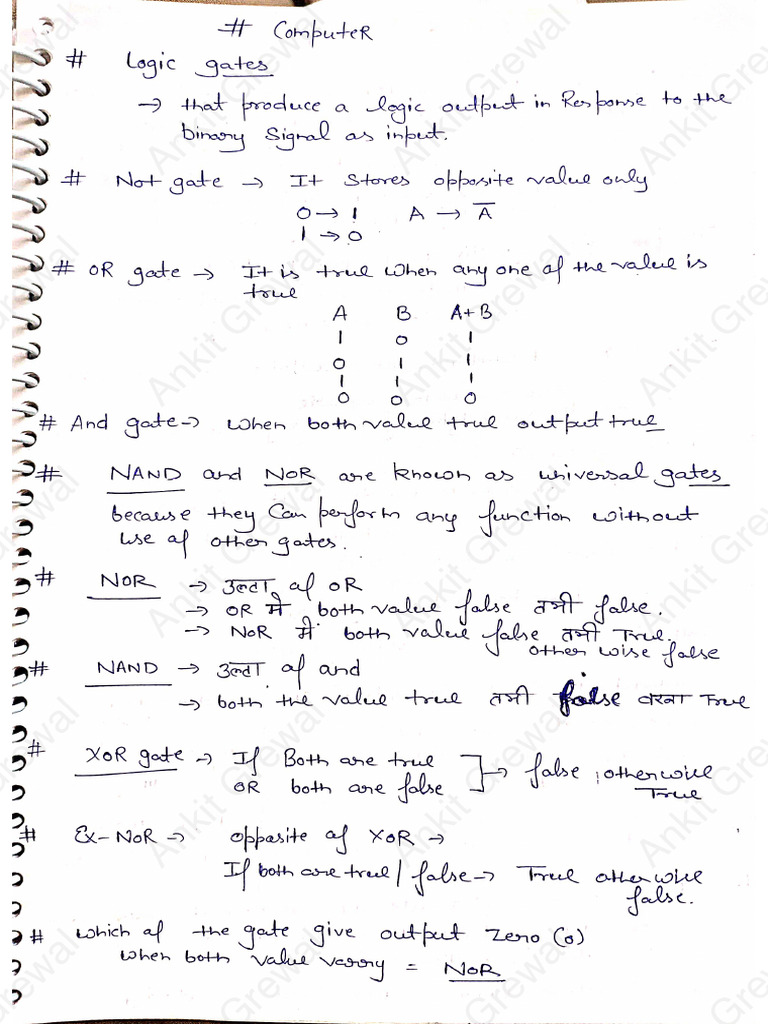 # Computer
# Logic gates
→ that produce a logic output in Response to the
binary Signal as input.
# Not gate → It stores opposite value only
0 → 1 A → A̅
1 → 0
# OR gate → It is true when any one of the value is
true
A B A+B
1 0 1
0 1 1
1 1 1
0 0 0
# And gate → when both value true output true
# NAND and NOR are known as universal gates
because they Can perform any function without
use of other gates.
# NOR → उल्टा of OR
→ OR में both value false तभी false.
→ NOR में both value false तभी True.
other wise false
# NAND → उल्टा of and
→ both the value true तभी false वरना True
# XOR gate → If Both are true
OR both are false → false ; otherwise
True
# Ex-NOR → opposite of XOR →
If both are true / false → True otherwise
false.
# which of the gate give output zero (0)
when both value varry = NOR
Ankit Grewal